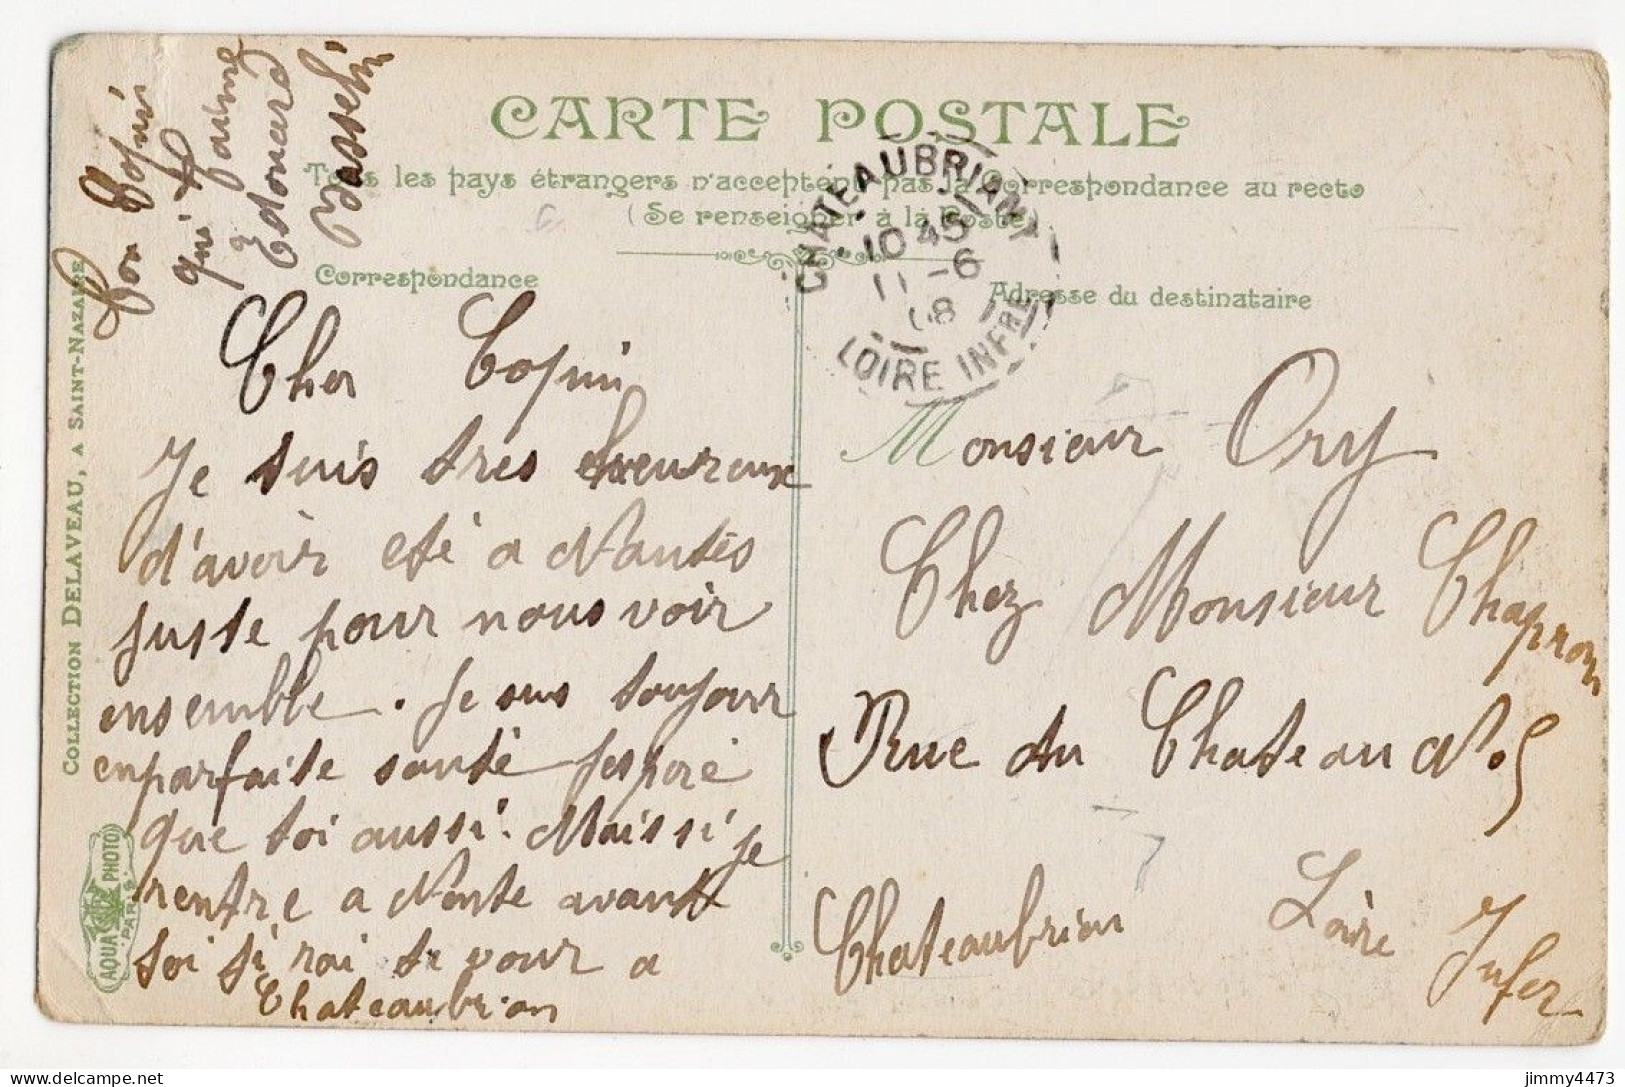 CARTE POSTALE
Tous les pays étrangers n'acceptent pas la Correspondance au recto
(Se renseigner à la Poste)
Correspondance
Adresse du destinataire
CHATEAUBRIANT
10 45
11-6
08
LOIRE INFRE
Cher Copin
Je suis tres heureux
d'avoir eté a Nantes
juste pour nous voir
ensemble. Je sus toujour
enparfaite santé Jespere
que toi aussi. Mais si je
rentre a Nante avant
toi ji rai te vour a
Chateaubrian
Ton Copin
qui t'aime
Edouard
Monsieur Ory
Chez Monsieur Chapron
Rue du Chateau No 5
Chateaubrian Loire Infer
COLLECTION DELAVEAU, A SAINT-NAZAIRE
AQUA PHOTO
PARIS
jimmy4473